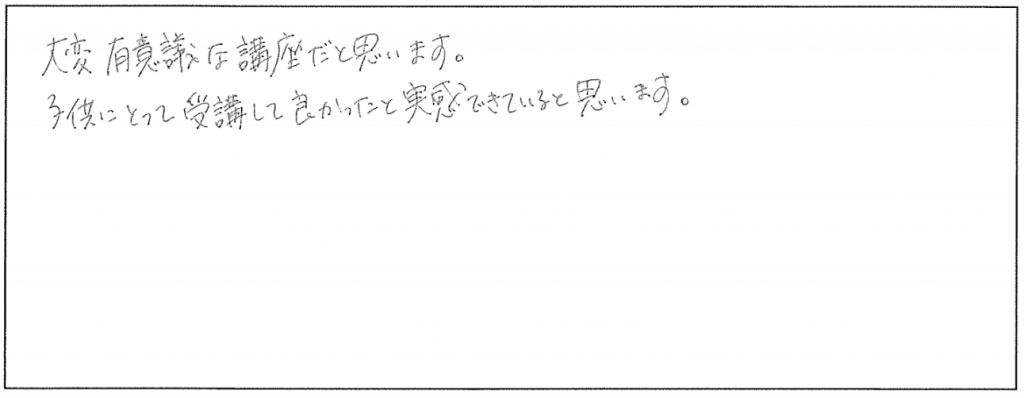 大変有意議な講座だと思います。
子供にとって受講して良かったと実感できていると思います。